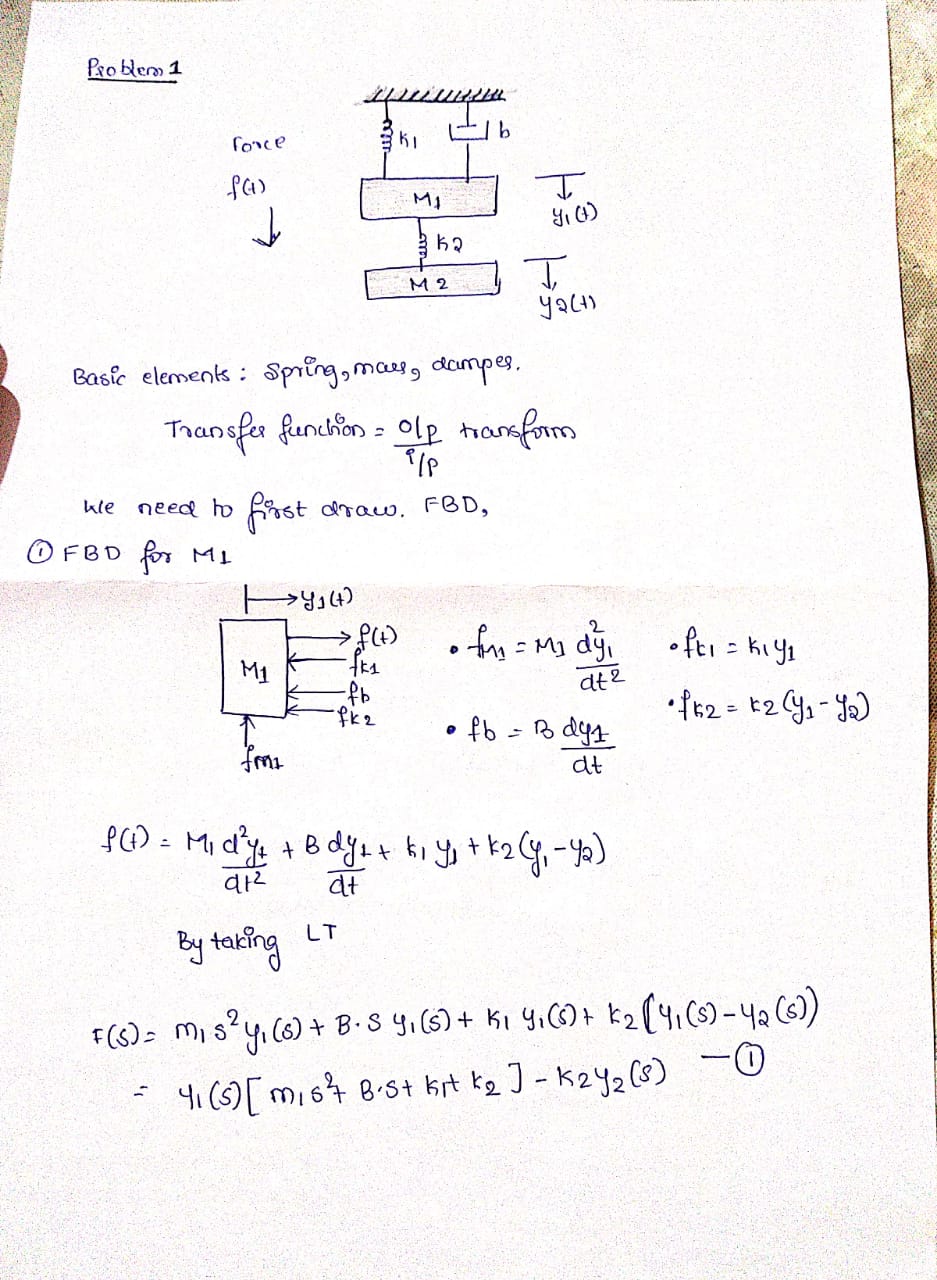 Problem 1
Force
f(t)
K1
b
M1
y1(t)
k2
M2
y2(t)
Basic elements : Spring, mass, damper.
Transfer function = o/p transform
i/p
We need to first draw. FBD,
① FBD for M1
y1(t)
f(t)
M1
fk1
fb
fk2
fm1
• fm1 = M1 d²y1
dt²
• fk1 = K1y1
• fb = B dy1
dt
• fk2 = k2 (y1 - y2)
f(t) = M1 d²y1 + B dy1 + k1 y1 + k2 (y1 - y2)
dt² dt
By taking LT
F(s) = m1 s² y1(s) + B·S y1(s) + K1 y1(s) + k2 (y1(s) - y2(s))
= y1(s) [ m1s² + B·S + k1 + k2 ] - K2Y2(s) — ①